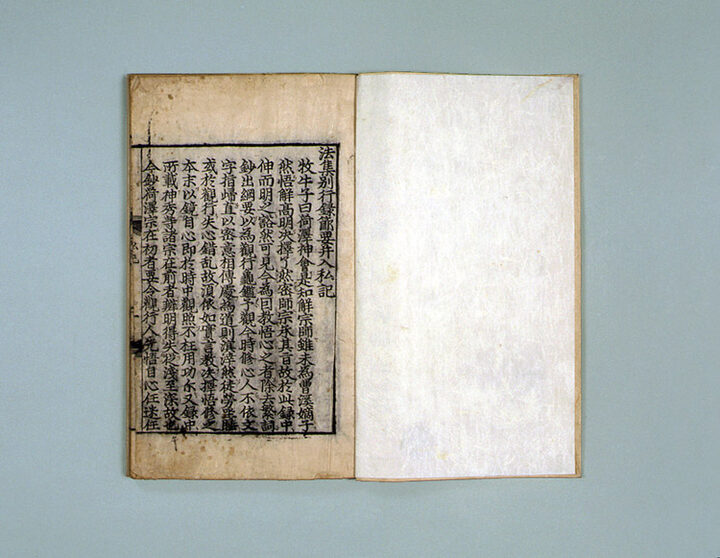 法集别行録節要并入私記
牧牛子曰荷澤神會是知解宗師雖未為曹溪嫡子
然悟解高明决擇了然密師宗承其旨故於此録中
伸而明之豁然可見今為因教悟心之者除去繁詞
鈔出綱要以為觀行龜鑑予觀今時修心人不依文
字指歸直以密意相傳處為道則溟涬然徒勞坐睡
或於觀行失心錯乱故湏依如實言教决擇悟修之
本末以鏡自心即於時中觀照不枉用功尒又録中
所載神秀等諸宗在前者辨明得失從淺至深故也
今鈔荷澤宗在初者要令觀行人先悟自心任迷任